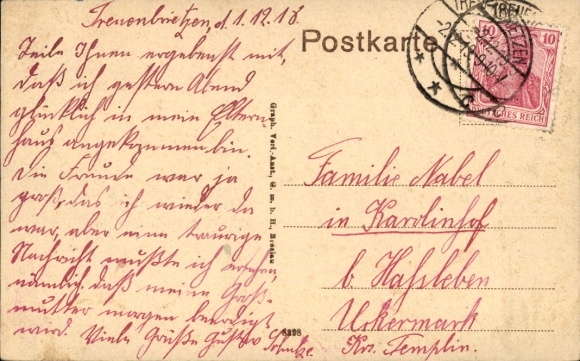 Treuenbrietzen, d. 1.12.18.
Postkarte
Teile Ihnen ergebenst mit,
daß ich gestern Abend
glücklich in mein Eltern-
haus angekommen bin.
Die Freude war ja
groß, das ich wieder da
war, aber eine traurige
Nachricht mußte ich erfahren,
nämlich, daß meine Groß-
mutter morgen beerdigt
wird. Viele Grüße Gustav Schulze.
Graph. Verl.-Anst., G. m. b. H., Breslau
8398
10 10
DEUTSCHES REICH
Familie Nabel
in Karolinhof
b. Haßleben
Uckermark
Krs. Templin.